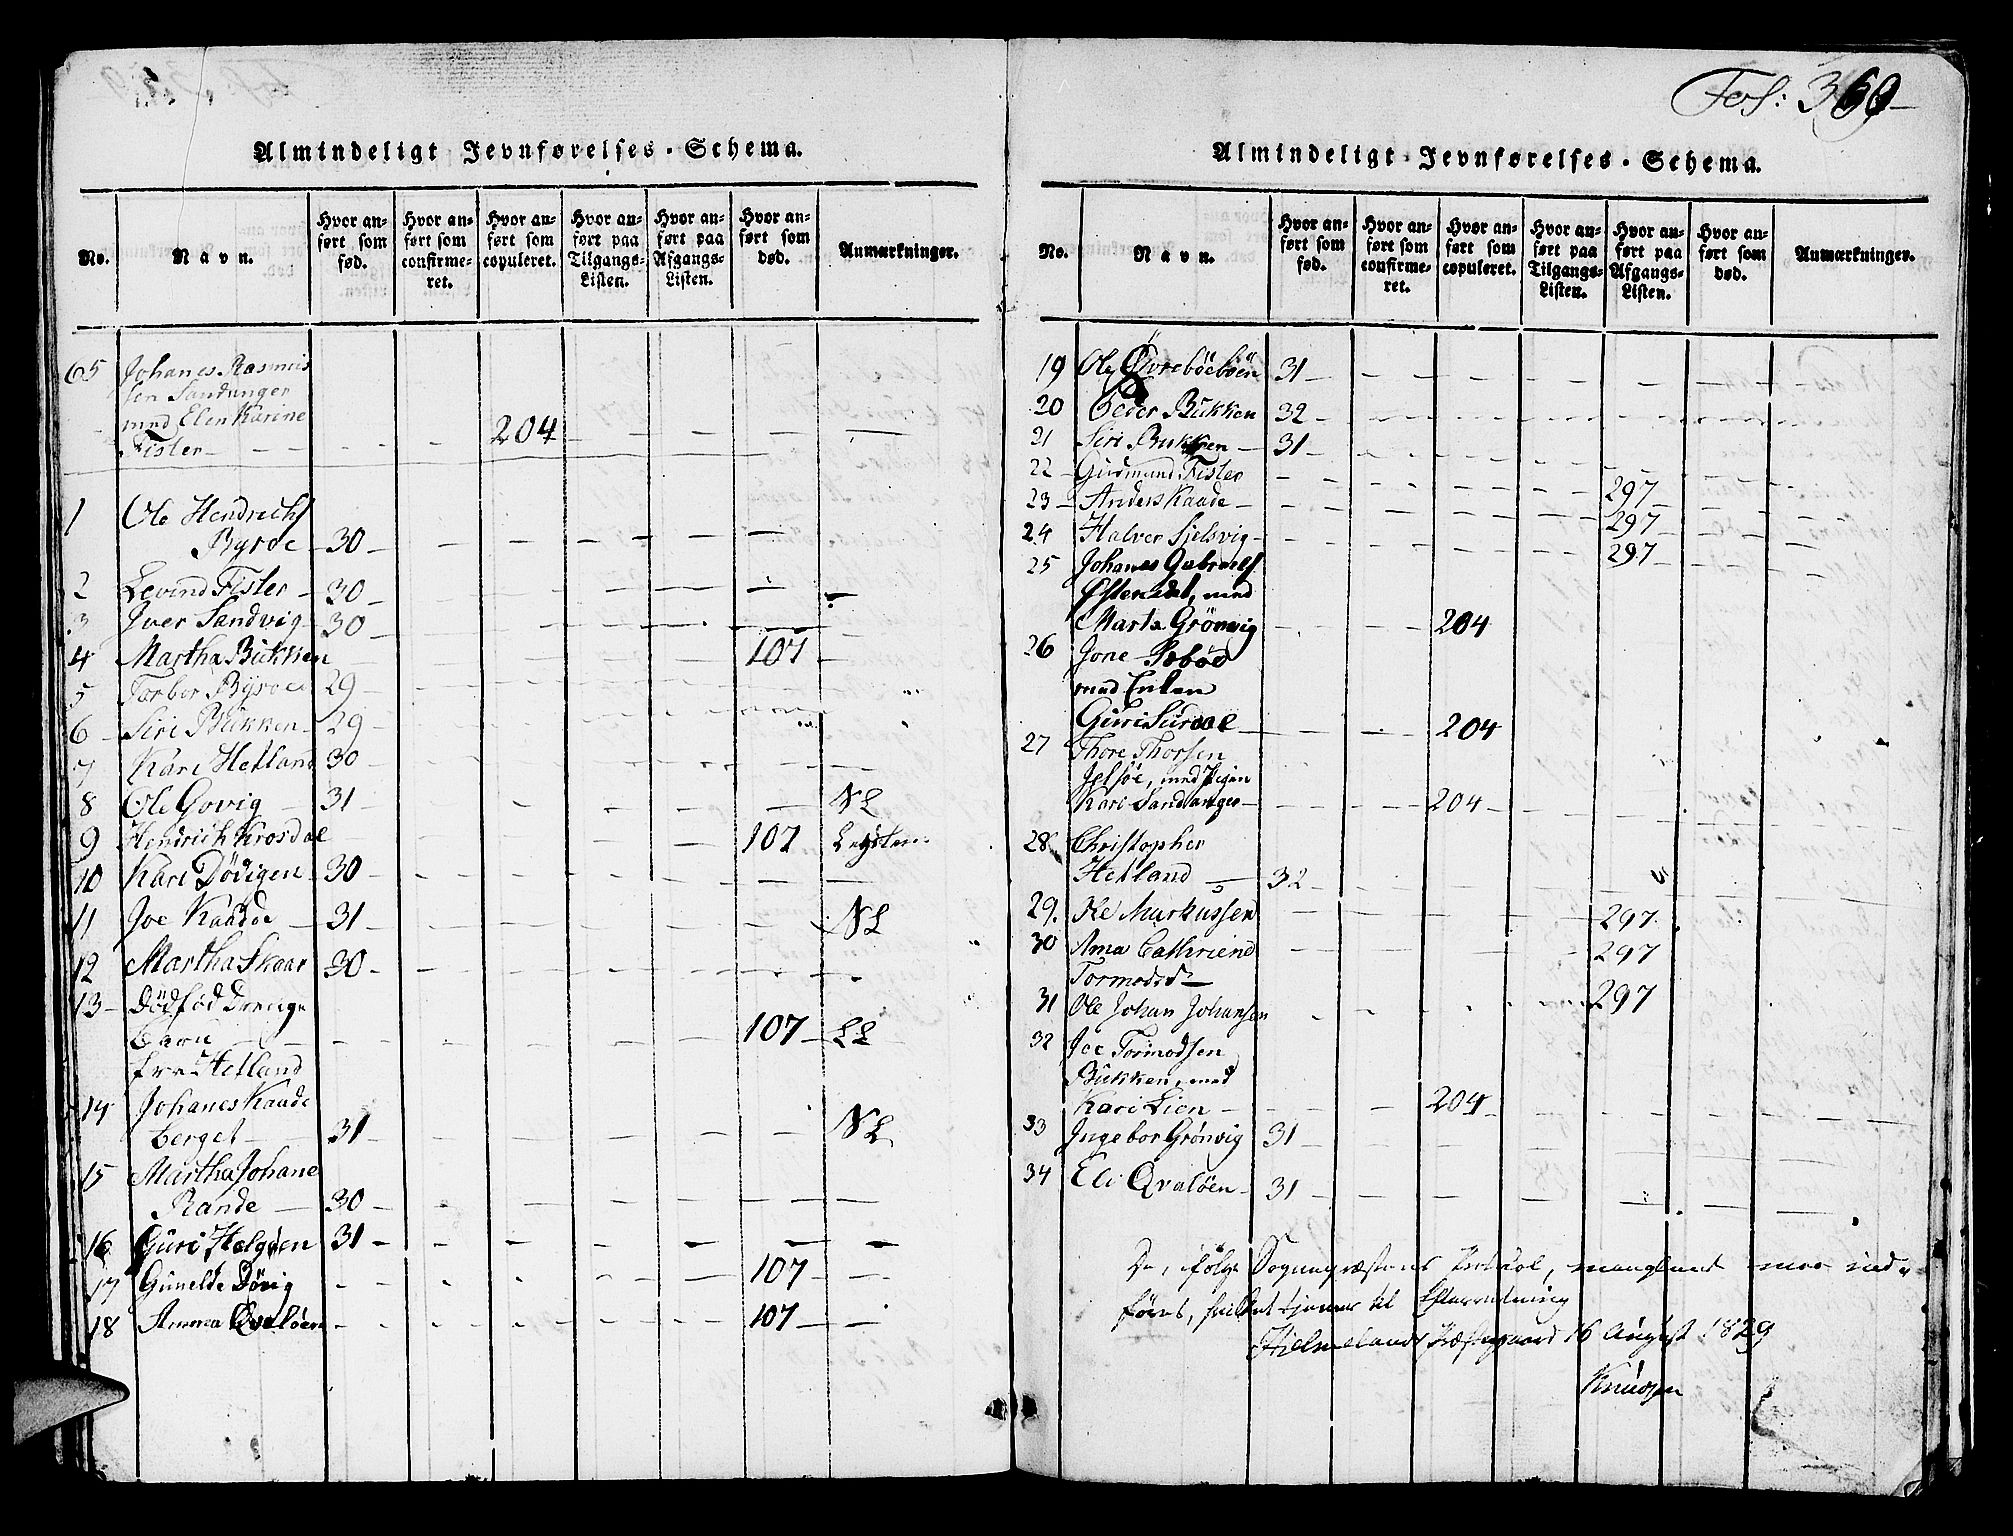 Almindeligt Jevnførelses-Schema.
No. Navn. Hvor anført som fød. Hvor anført som confirmeret. Hvor anført som copuleret. Hvor anført paa Tilgangs-Listen. Hvor anført paa Afgangs-Listen. Hvor anført som død. Anmærkninger.
65 Johanes Rasmus
sen Sandanger
med Elen Karine
Fister 204
1 Ole Hendrichs
Byroe 30
2 Levind Fister 30
3 Iver Sandvig 30
4 Martha Bukken 107
5 Torbor Byroe 29
6 Siri Bukken 29
7 Kari Hetland 30
8 Ole Govig 31 NL
9 Hendrich Krosdal 107
10 Kari Dövigen 30
11 Joe Kaade 31 NL
12 Martha Skaar 30
13 Dödfød Drenge
Barn 107 LL
fra Hetland
14 Johanes Kaade
berget 31 NL
15 Martha Johane
Rande 30
16 Guri Helgöen 31
17 Gunelde Dövig 107
18 Anna Qvalöen 107
Fol: 369
Almindeligt Jevnførelses-Schema.
No. Navn. Hvor anført som fød. Hvor anført som confirmeret. Hvor anført som copuleret. Hvor anført paa Tilgangs-Listen. Hvor anført paa Afgangs-Listen. Hvor anført som død. Anmærkninger.
19 Ole Övreböeböen 31
20 Peder Bukken 32
21 Siri Bukken 31
22 Gudmund Fister 297
23 Anders Kaade 297
24 Halvor Sjelsvig 297
25 Johanes Gabriels
med
Marta Grönvig 204
26 Jone
med Enken
Guri Surdal 204
27 Thore Thorsen
Jelsöe, med Pigen
Kari Sandanger 204
28 Christopher
Hetland 32
29. Ole Markussen 297
30 Anna Cathriene 297
Tormodsd
31 Ole Johan Johansen 297
32 Joe Tormodsen
Bukken, med
Kari Lien 204
33 Ingebor Grönvig 31
34 Eli Qvalöen 31
föres, hvilket tjener til Efterretning
Hjelmelands Præstegaard 16 August 1829
Knudsen